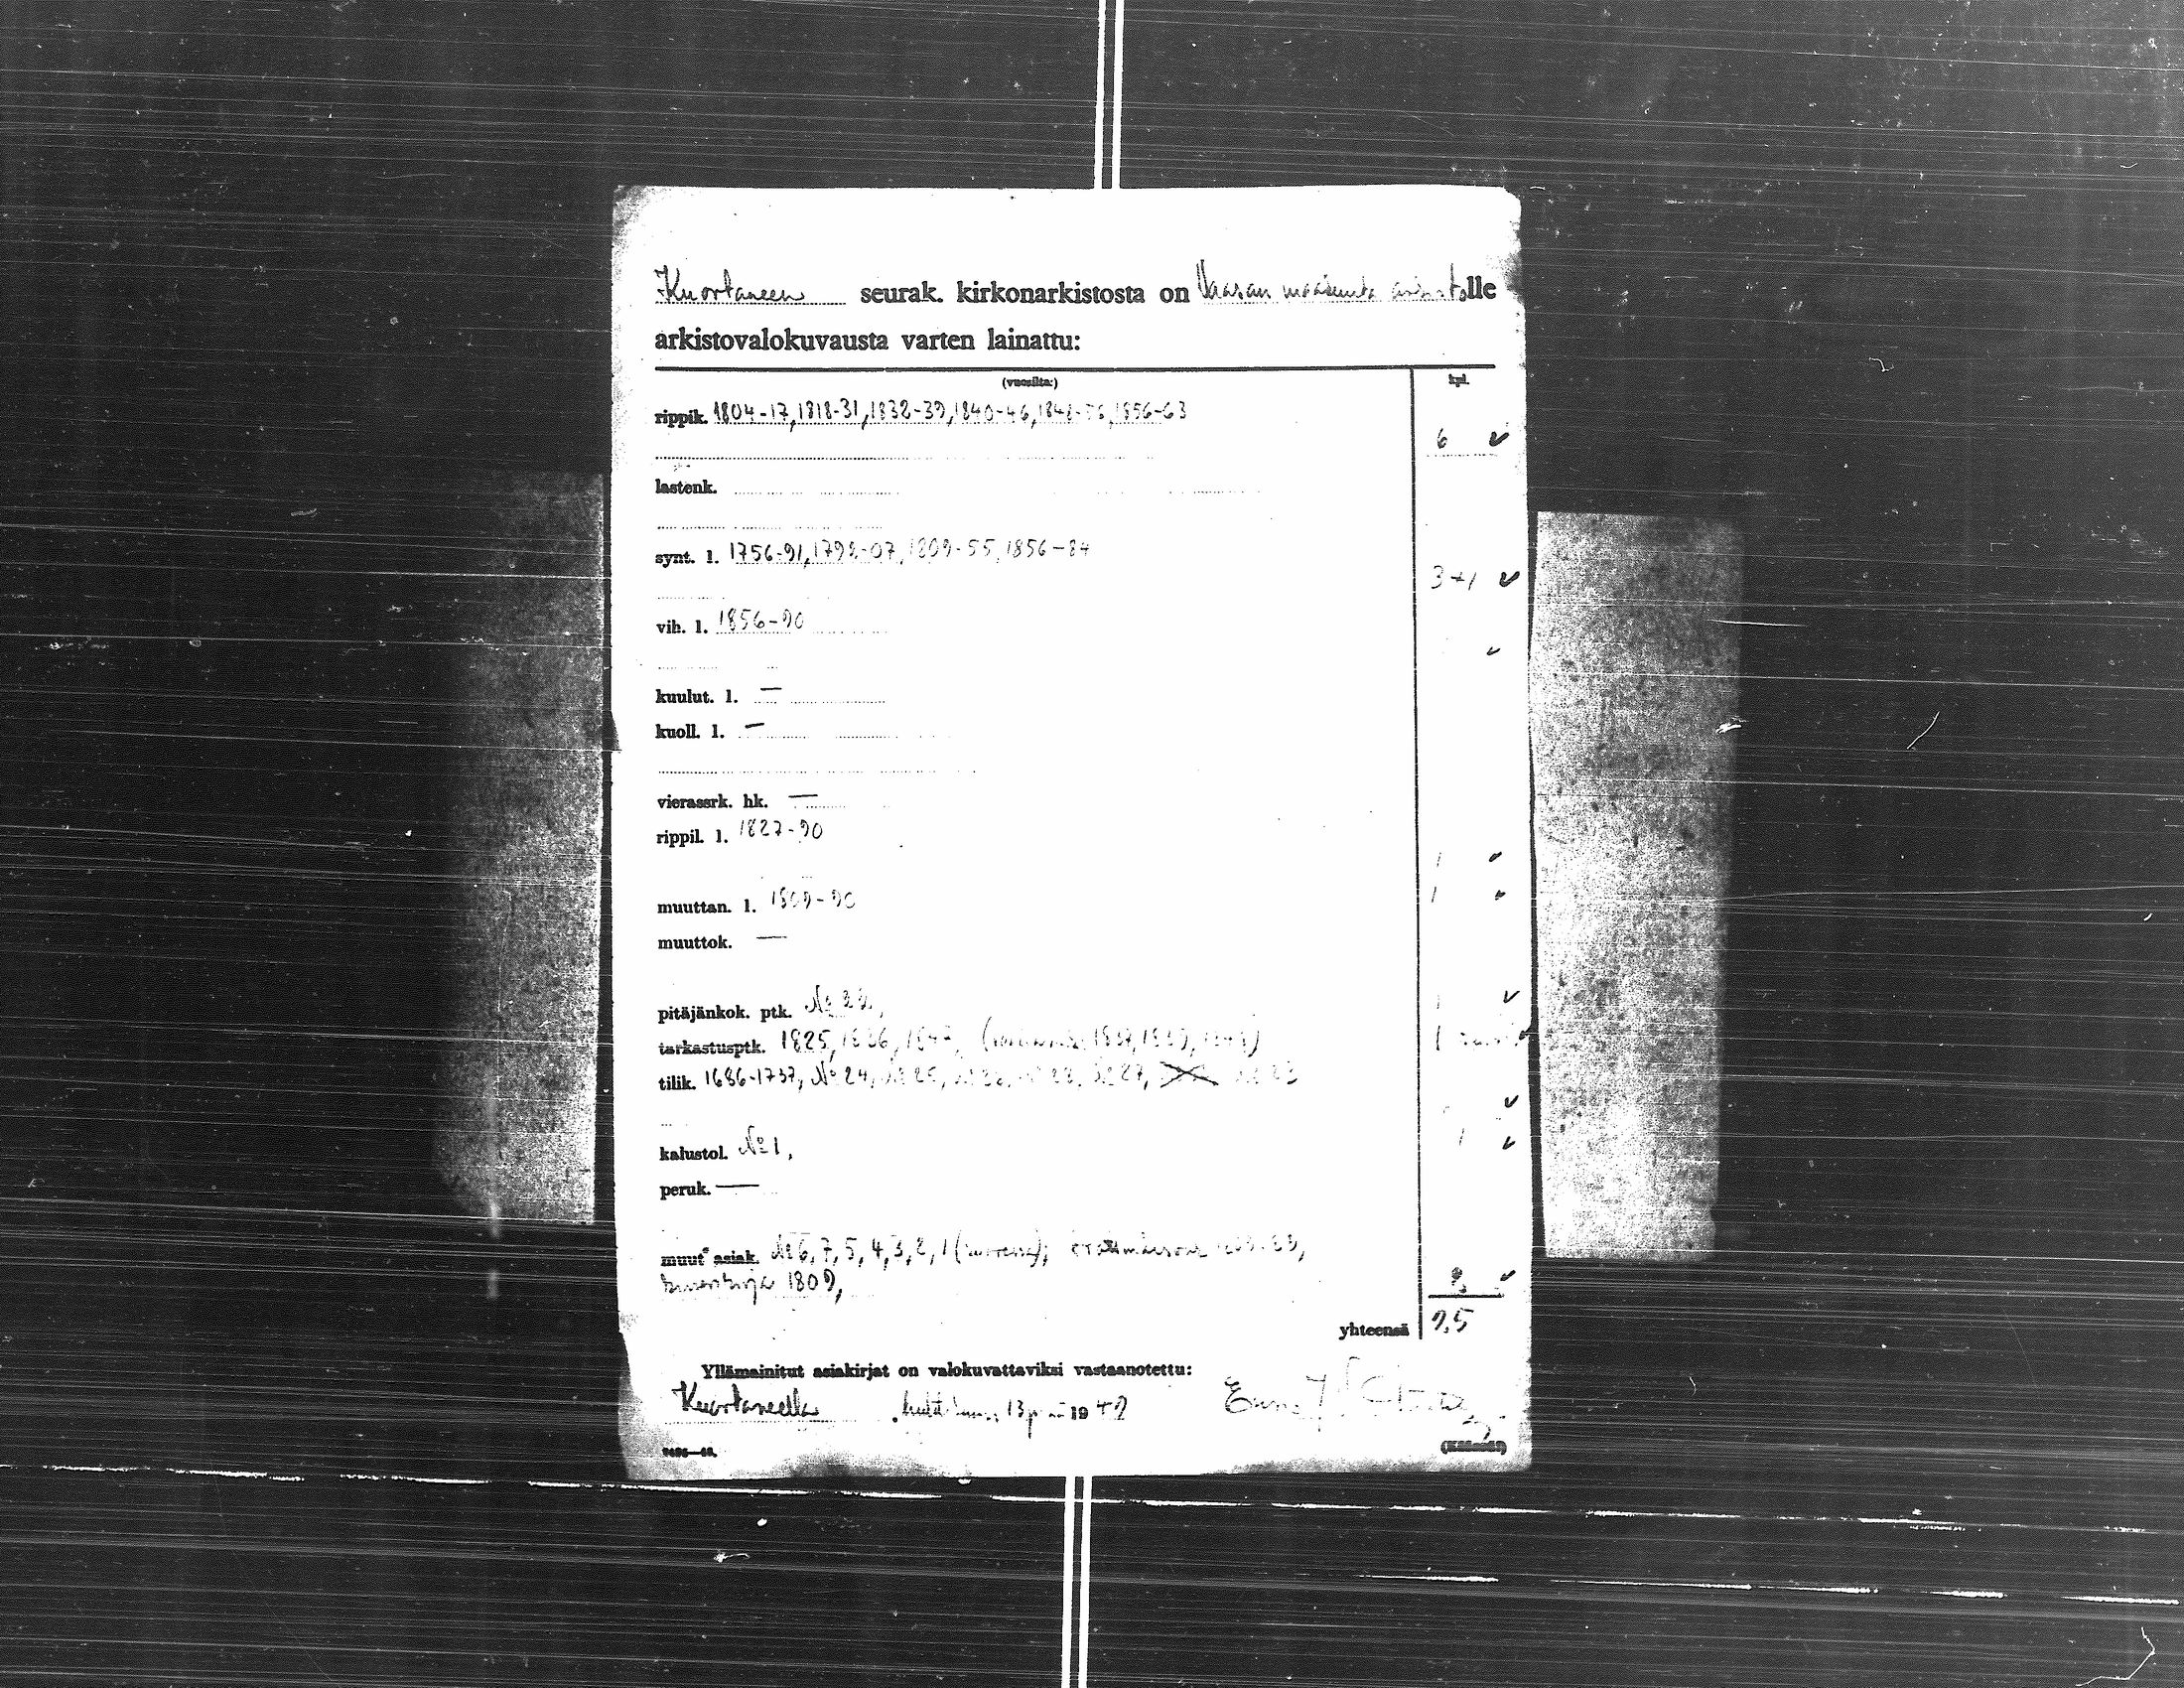 Kuortaneen seurak. kirkonarkistosta on Vaasan maakunta arkistolle
arkistovalokuvausta varten lainattu:
(vuosilta:) kpl.
rippik. 1804-17, 1818-31, 1832-39, 1840-46, 1856-63
6 ✓
lastenk.
synt. l. 1756-91, 1809-55, 1856-84
3+1 ✓
vih. l. 1856-90
✓
kuulut. l. —
kuoll. l. —
vierassrk. hk. —
rippil. l. 1827-90
1 ✓
muuttan. l. 1809-90 1 ✓
muuttok. —
pitäjänkok. ptk. 1 ✓
tarkastusptk. 1825, 1836, 1847,
tilik. 1686-1737, № 24,
✓
kalustol. № 1, 1 ✓
peruk. —
muut asiak. № 6, 7, 5, 4, 3, 2, 1
1809, ✓
yhteensä 25
Yllämainitut asiakirjat on valokuvattaviksi vastaanotettu:
Kuortaneella huhtikuun 13 p:nä 19